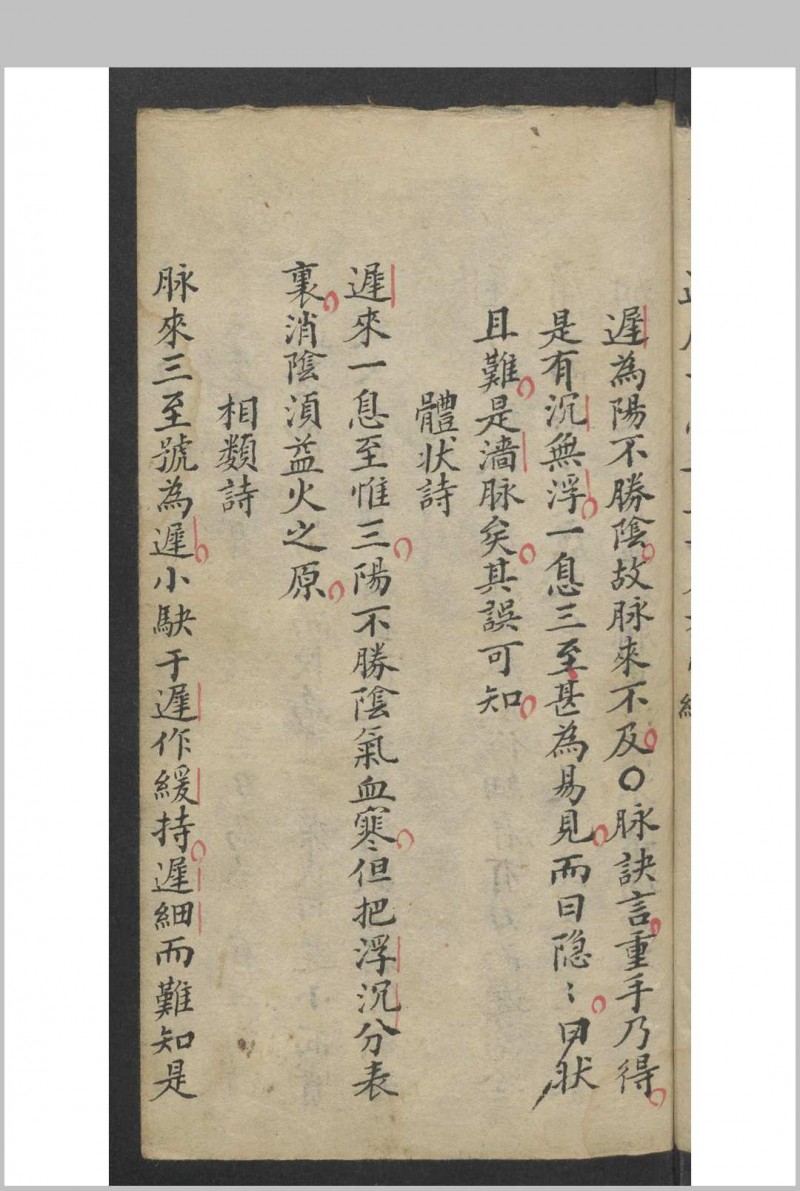 遲為陽不勝陰故脉來不及〇脉訣言重手乃得
是有沉無浮一息三至甚為易見而曰隐〻曰狀
且難是濇脉矣其誤可知
體狀詩
遲來一息至惟三陽不勝陰氣血寒但把浮沉分表
裏消陰湏益火之原
相類詩
脉來三至號為遲小駃于遲作緩持遲細而難知是